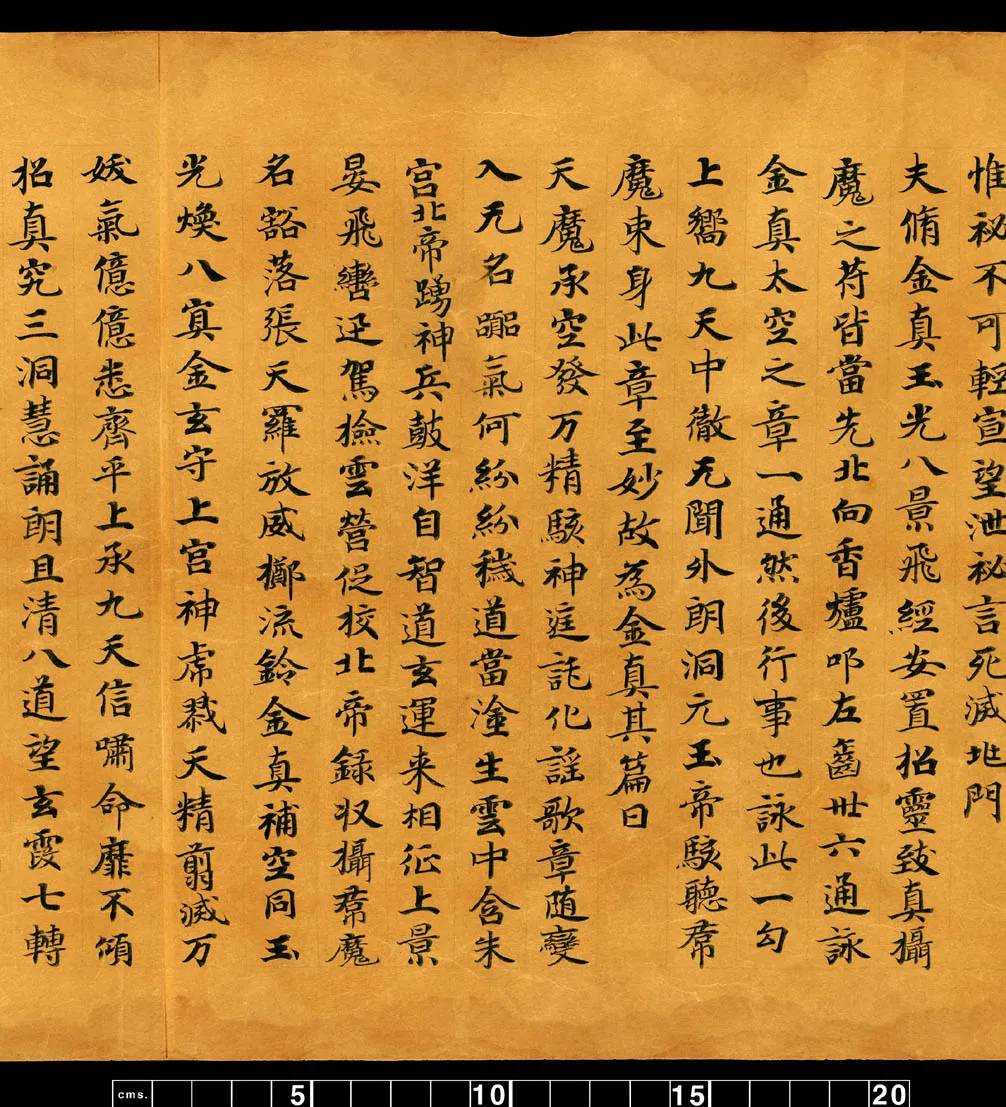 惟祕不可輕宣望泄祕言死滅地門
夫脩金真玉光八景飛經安置招靈致真攝
魔之苻皆當先北向香爐叩左齒卅六通詠
金真太空之章一通然後行事也詠此一句
上嚮九天中徹无聞外朗洞元玉帝駭聽羣
魔束身此章至妙故為金真其篇曰
天魔承空發万精駭神廷託化謡歌章随變
入无名躡氣何紛紛穢道當塗生雲中含朱
宫北帝踴神兵鼓洋自智道玄運来相征上景
晏飛轡迅駕撿雲營促校北帝録収攝羣魔
名豁落張天羅放威擲流鈴金真補空同玉
光煥八冥金玄守上宫神虎戮天精翦滅万
妖氣億億悉齊平上承九天信嘯命靡不傾
招真究三洞慧誦朗且清八道望玄霞七轉
cms. 5 10 15 20